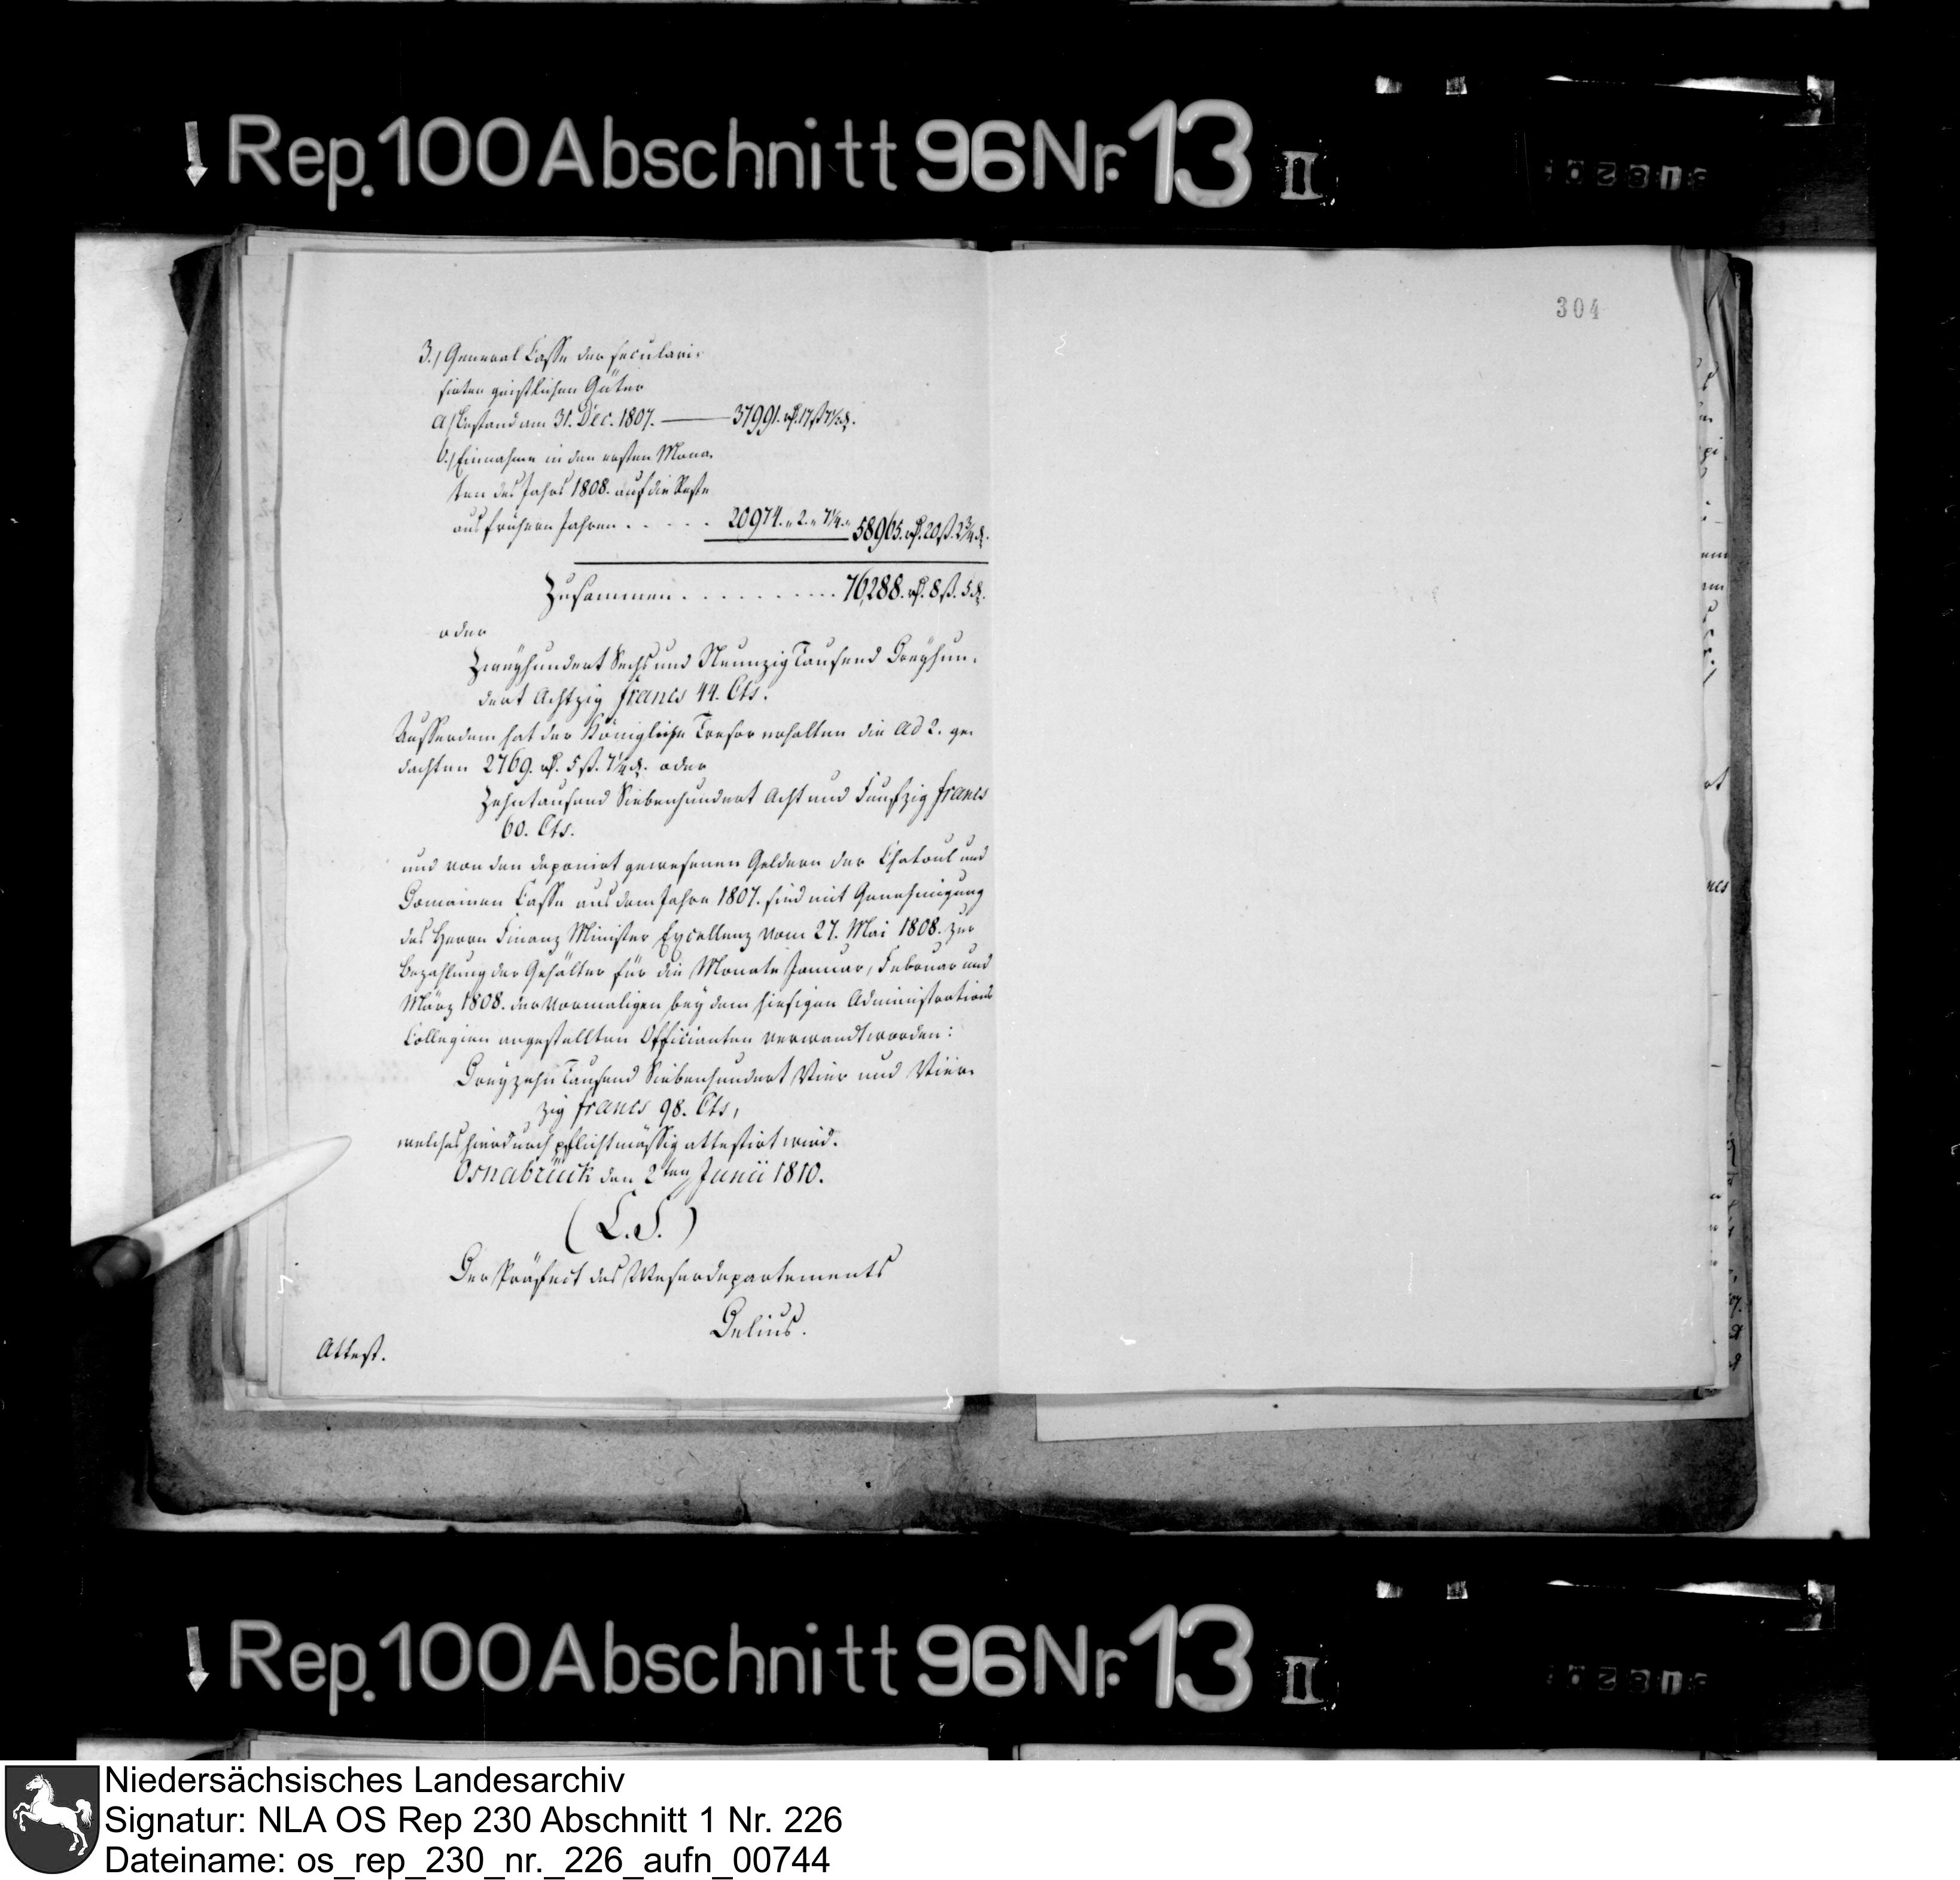 Rep. 100 Abschnitt 96 Nr. 13 II
304
3.) General Casse der seculari-
sirten geistlichen Güter
a) Bestand am 31. Dec. 1807. — 37991. rthl. 17 ß 7 1/2 d.
b.) Einnahme in den ersten Mona-
ten des Jahrs 1808. auf die Reste
aus frühern Jahren . . . . . 20974. „ 2. „ 7 1/4. „ 58965. rthl. 20 ß. 2 3/4 d.
Zusammen . . . . . . . . . . 76,288. rthl. 8 ß. 5 d.
oder
Zweyhundert Sechs und Neunzig Tausend Dreyhun-
dert Achtzig francs 44. Cts.
Ausserdem hat der Königliche Tresor erhalten die ad 2. ge-
dachten 2769. rthl. 5 ß. 7 1/4 d. oder
Zehntausend Siebenhundert Acht und Funfzig francs
60. Cts.
und von den deponirt gewesenen Geldern der Chatoul und
Domainen Casse aus dem Jahre 1807. sind mit Genehmigung
des Herrn Finanz Minister Excellenz vom 27. Mai 1808. zur
Bezahlung der Gehälter für die Monate Januar, Februar und
März 1808. der vormaligen bey dem hiesigen Administrations
Collegien angestellten Officianten verwandt worden:
Dreyzehn Tausend Siebenhundert Vier und Vier-
zig francs 98. Cts,
welches hierdurch pflichtmässig attestirt wird.
Osnabrück den 2ten Junii 1810.
(L.S.)
Der Präfect des Weserdepartements
Delius.
Attest.
Rep. 100 Abschnitt 96 Nr. 13 II
Niedersächsisches Landesarchiv
Signatur: NLA OS Rep 230 Abschnitt 1 Nr. 226
Dateiname: os_rep_230_nr._226_aufn_00744